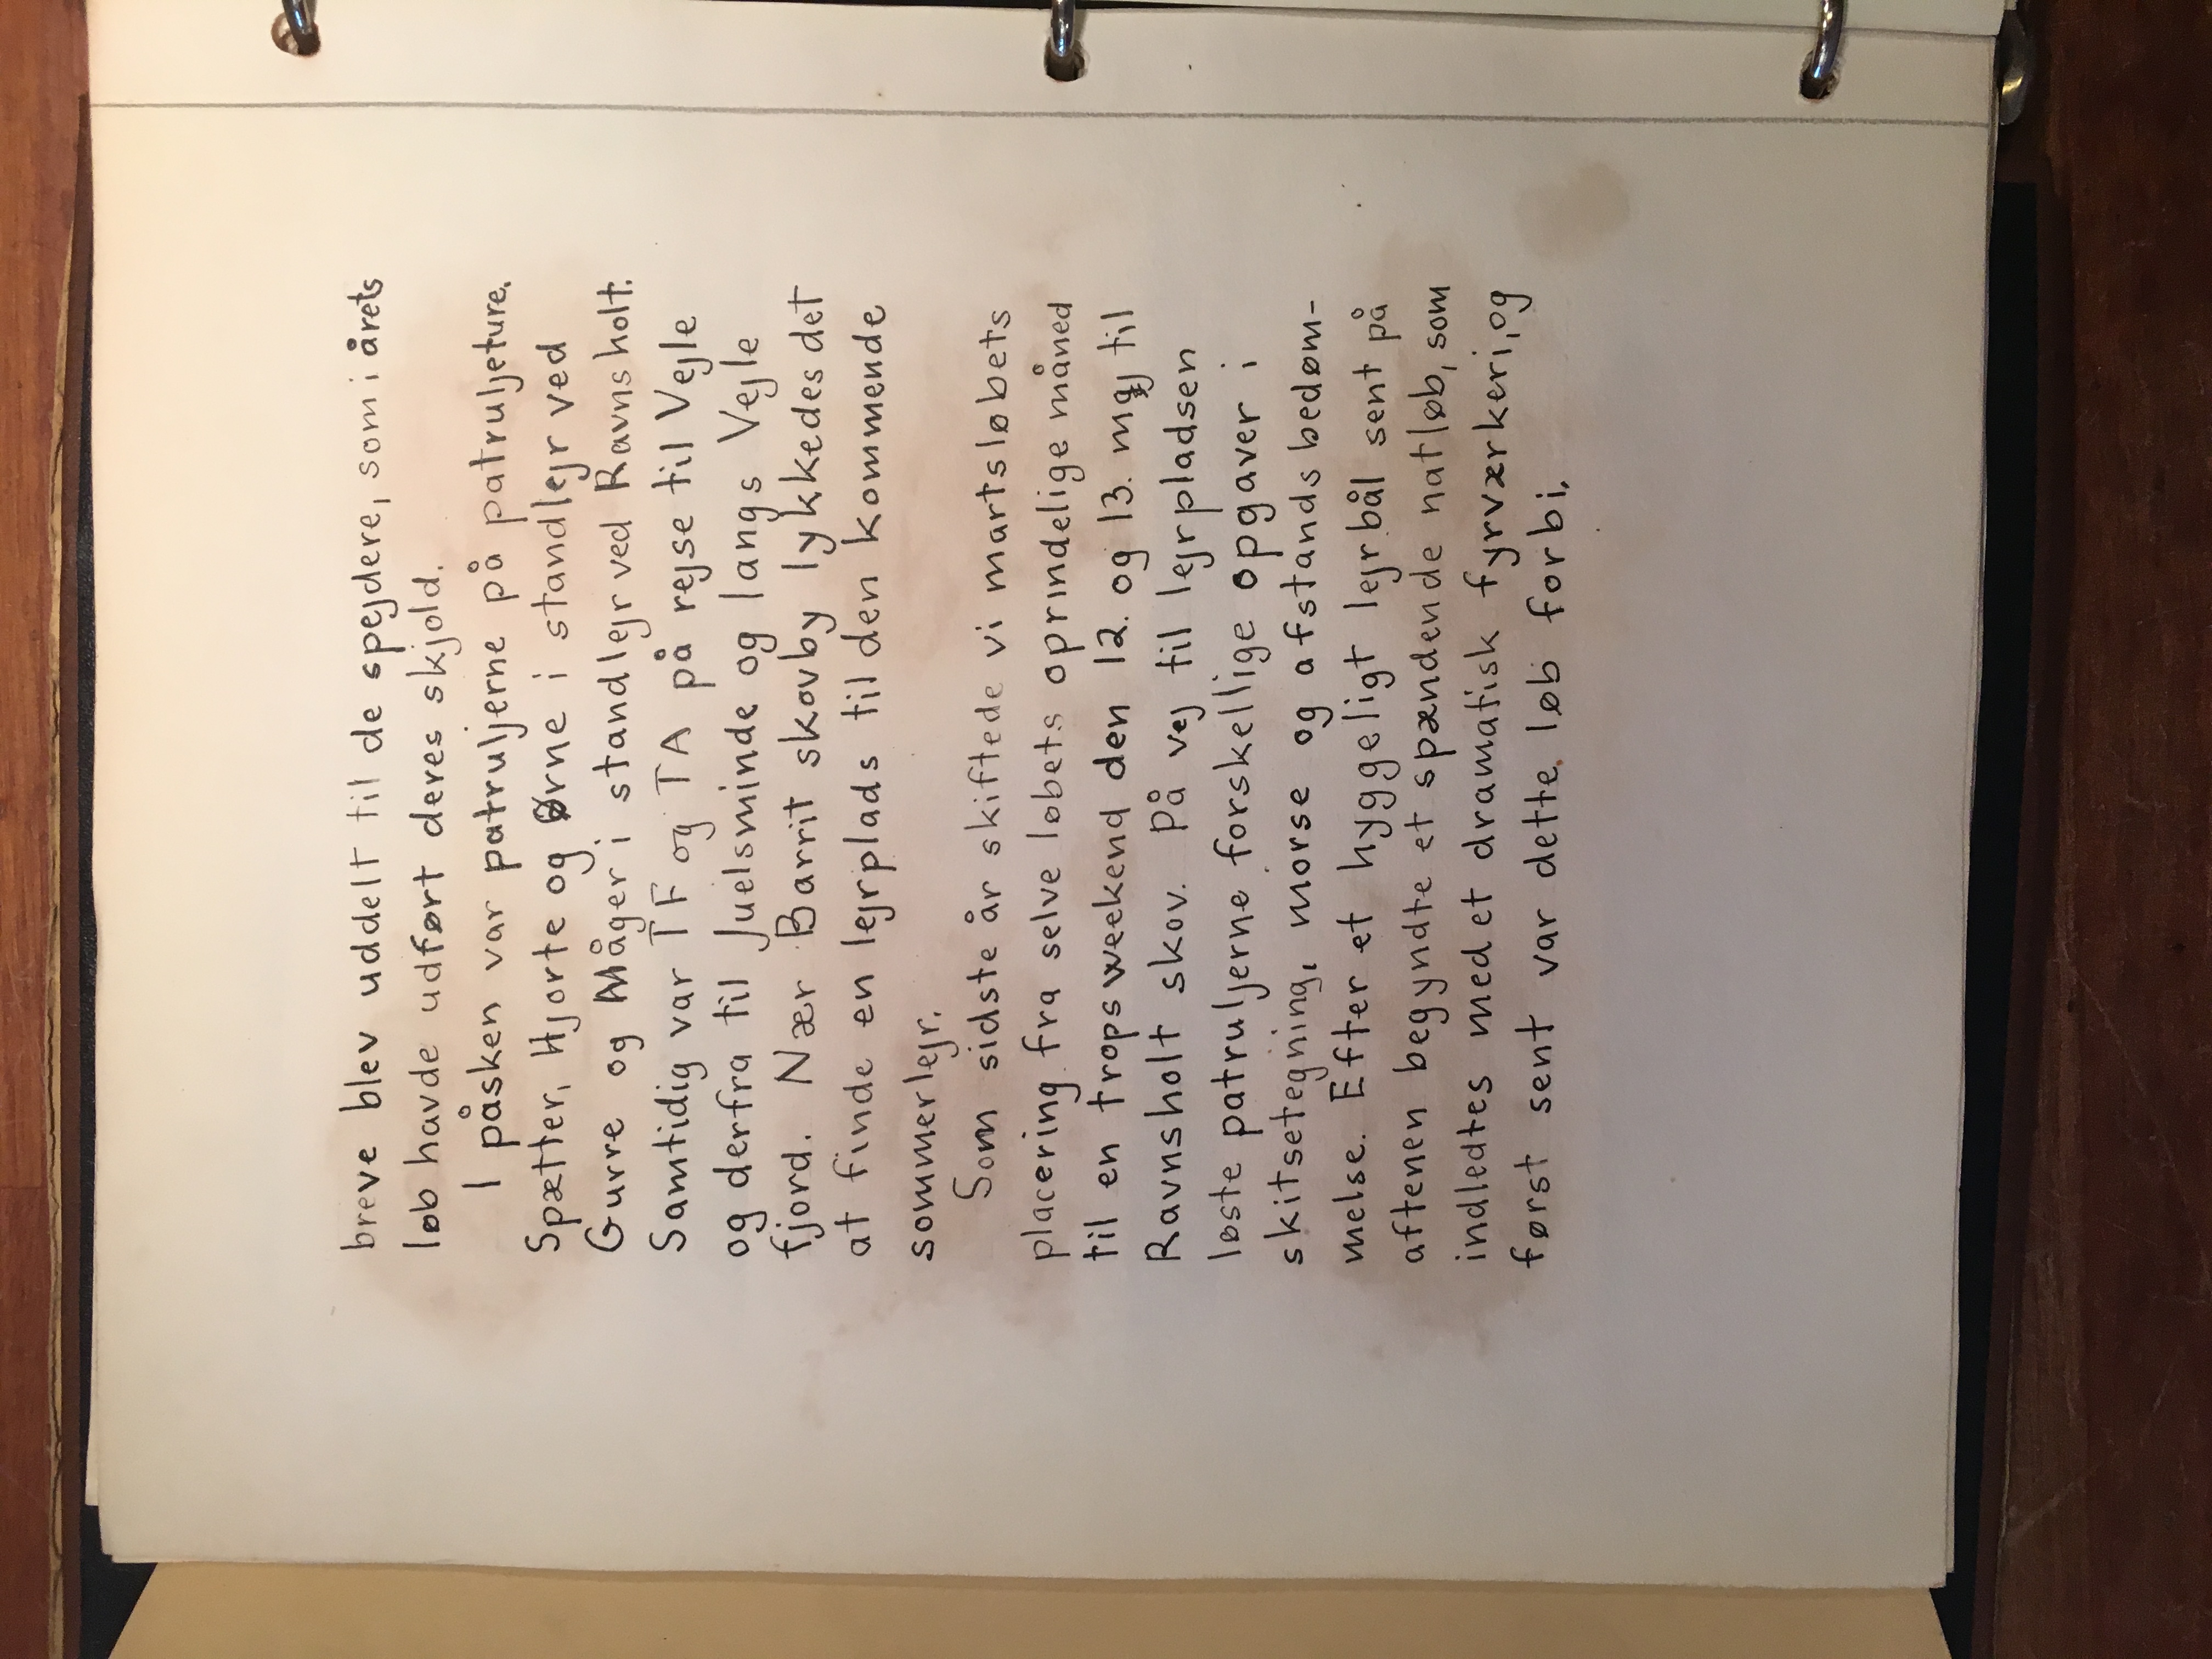 breve blev uddelt til de spejdere, som i årets
løb havde udført deres skjold.
I påsken var patruljerne på patruljeture.
Spætter, Hjorte og Ørne i standlejr ved
Gurre og Måger i standlejr ved Ravnsholt.
Samtidig var TF og TA på rejse til Vejle
og derfra til Juelsminde og langs Vejle
fjord. Nær Barrit skovby lykkedes det
at finde en lejrplads til den kommende
sommerlejr.
Som sidste år skiftede vi martsløbets
placering fra selve løbets oprindelige måned
til en tropsweekend den 12. og 13. maj til
Ravnsholt skov. På vej til lejrpladsen
løste patruljerne forskellige opgaver i
skitsetegning, morse og afstandsbedøm-
melse. Efter et hyggeligt lejrbål sent på
aftenen begyndte et spændende natløb, som
indledtes med et dramatisk fyrværkeri, og
først sent var dette løb forbi.